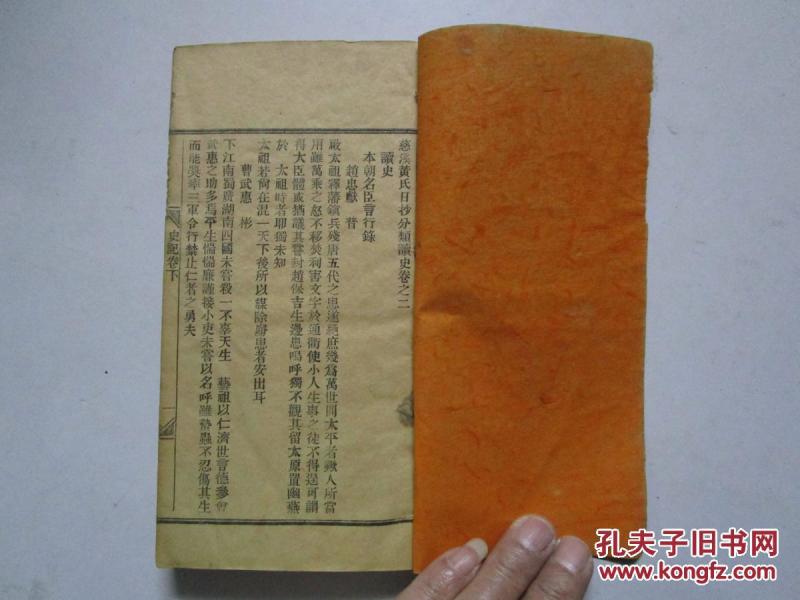 慈溪黃氏日抄分類讀史卷之二
讀史
本朝名臣言行錄
趙忠獻 普
嚴太祖釋藩鎮兵殘唐五代之患遂絕庶幾爲萬世開太平者歟人所當
用雖萬乘之怒不移矣利害文字於通衢使小人生事之徒不得逞可謂
得大臣體或猶議其嘗封趙保吉生邊患嗚呼獨不觀其留太原置幽燕
於 太祖時者耶獨未知
太祖若尚在混一天下後所以謀除虜患者安出耳
曹武惠 彬
下江南蜀廣湖南四國未嘗殺一不辜天生 藝祖以仁濟世言德參會
武惠之助多焉平生惴惴廉謹接小吏未嘗以名呼雖蟄蟲不忍傷其生
而能吳蜂三軍令行禁止仁者之勇夫
史記卷下
孔夫子旧书网
www.kongfz.com